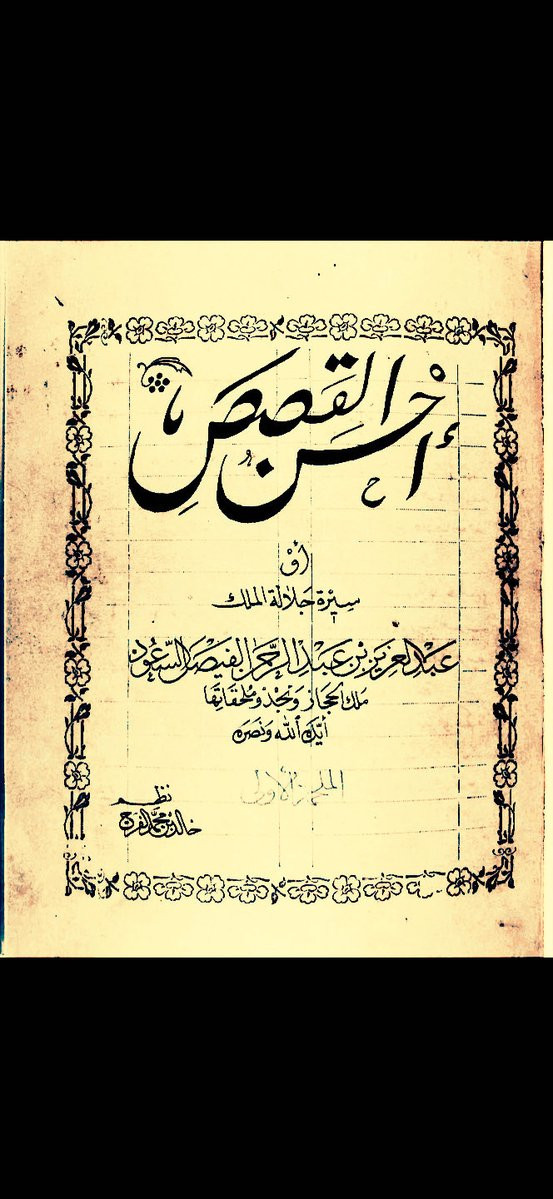 أحْسن القَصَصِ
أوْ
سِيْرة جَلالة الملك
عَبْد العَزيز بْن عَبْد الرَّحمن الفيْصَل السّعُود
مَلك الحجَاز وَنجْد وَمُلحَقاتِهَا
أيَّدَه الله وَنَصَرَه
الأول
نظم
خالد بن محمد الفرج